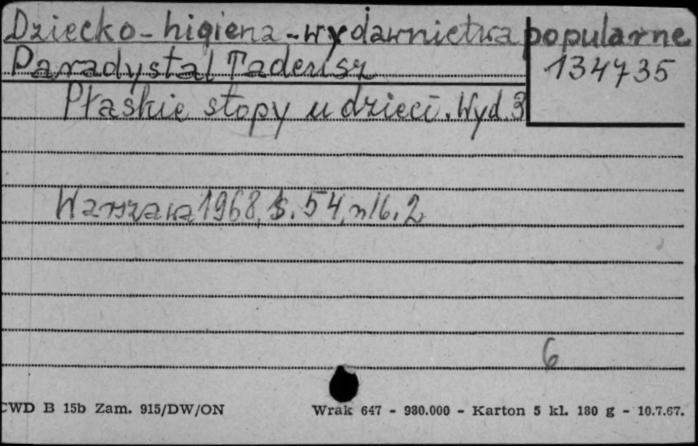 Dziecko - higiena - wydawnictwa popularne
Paradystal Tadeusz
134735
Płaskie stopy u dzieci. Wyd. 3
Warszawa 1968, s. 54, nlb. 2
6
CWD B 15b Zam. 915/DW/ON Wrak 647 - 980.000 - Karton 5 kl. 180 g - 10.7.67.